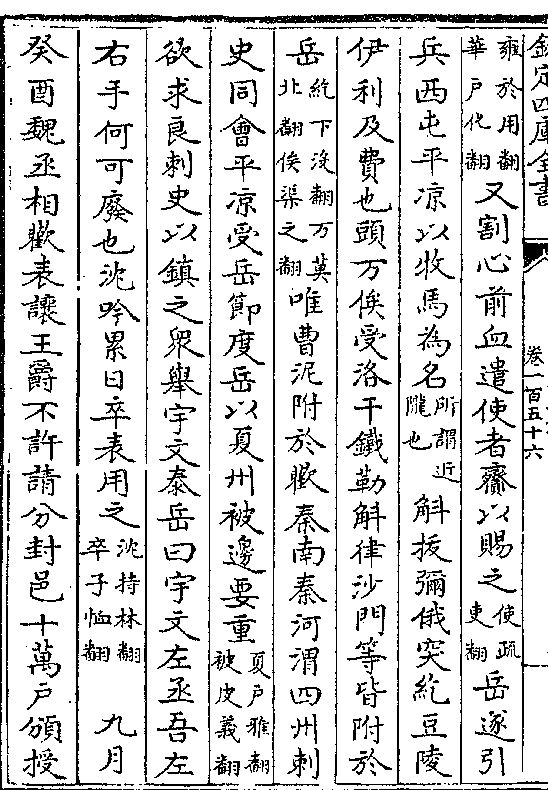 欽定四庫全書 卷一百五十六
雍於用翻華戶化翻又割心前血遣使者齎以賜之使疏吏翻岳遂引
兵西屯平凉以牧馬為名所謂近隴也斛拔彌俄突紇豆陵
伊利及費也頭万俟受洛干鐵勒斛律沙門等皆附於
岳紇下沒翻万莫北翻俟渠之翻唯曹泥附於歡秦南秦河渭四州刺
史同會平凉受岳節度岳以夏州被邊要重夏戶雅翻被皮義翻
欲求良刺史以鎮之衆舉宇文泰岳曰宇文左丞吾左
右手何可廢也沈吟累日卒表用之沈持林翻卒子恤翻九月
癸酉魏丞相歡表讓王爵不許請分封邑十萬戶頒授